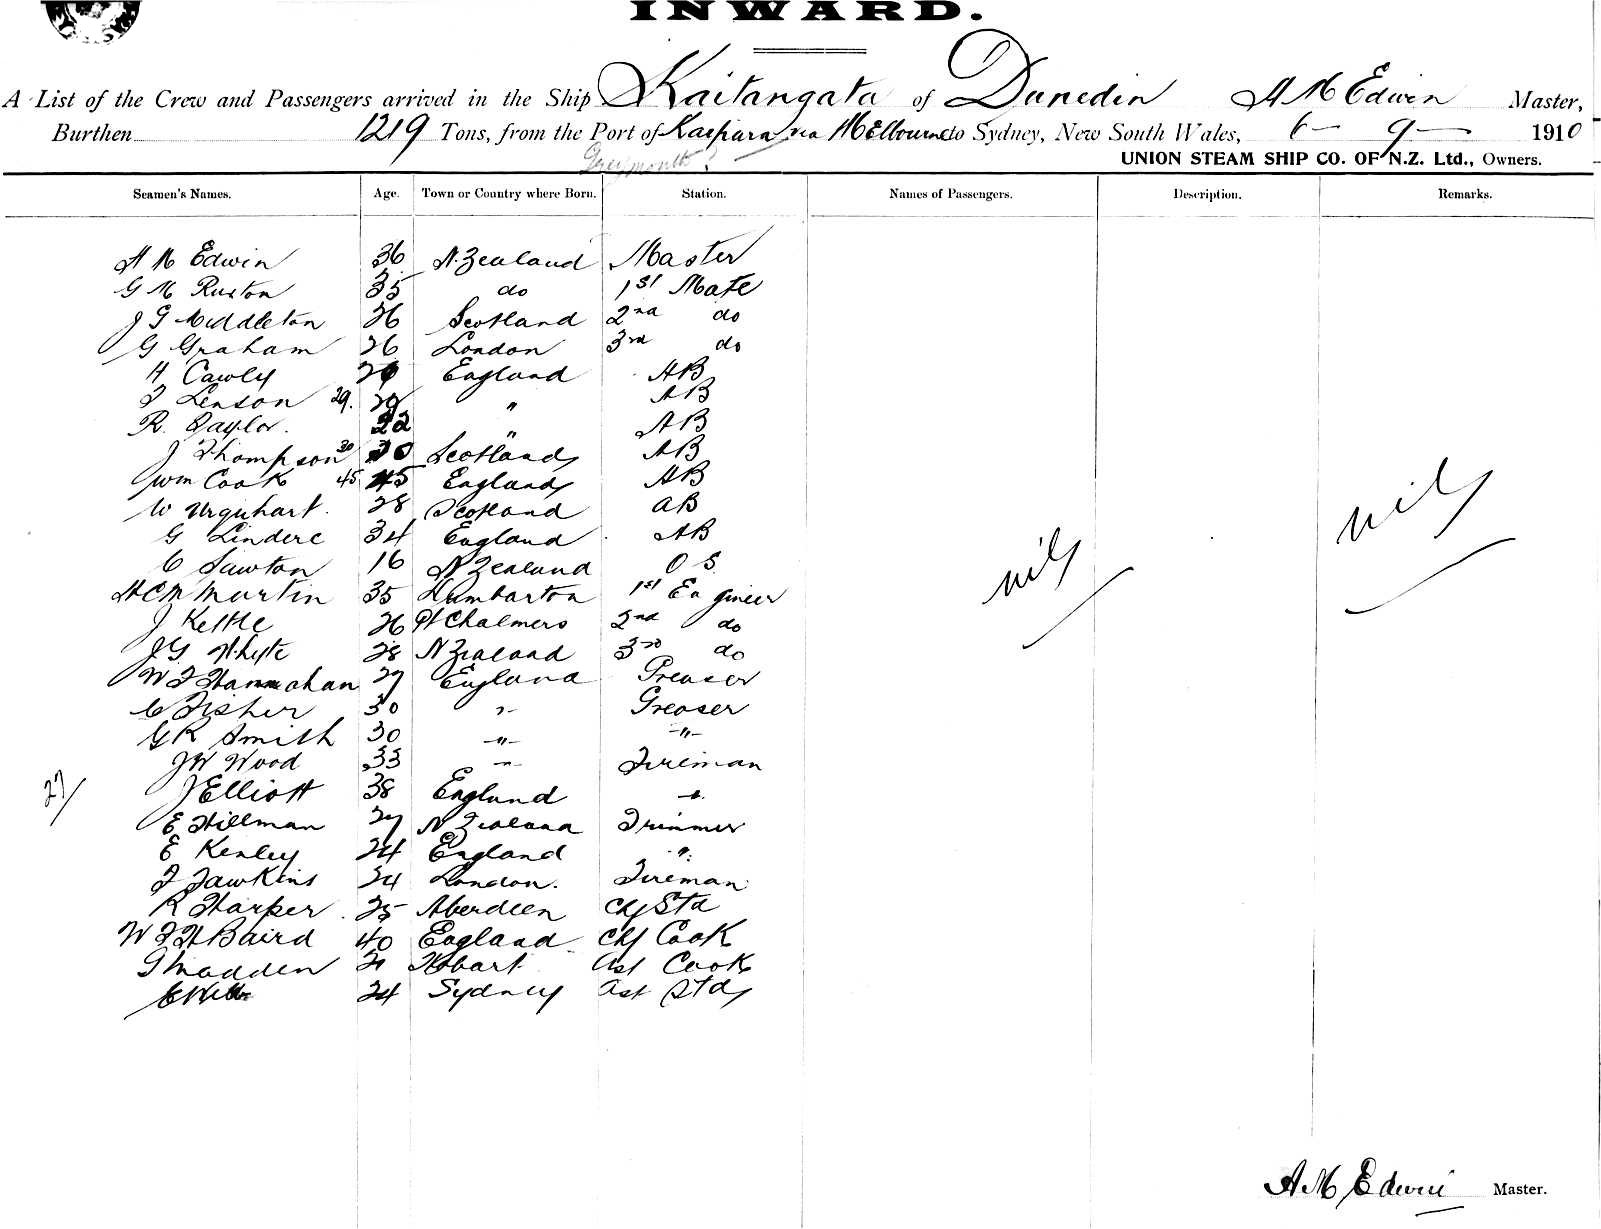 INWARD.
A List of the Crew and Passengers arrived in the Ship Kaitangata of Dunedin A M Edwin Master,
Burthen 1219 Tons, from the Port of Kaipara via Melbourne to Sydney, New South Wales, 6 - 9 - 1910
Greymouth?
UNION STEAM SHIP CO. OF N.Z. Ltd., Owners.
Seamen's Names. Age. Town or Country where Born. Station. Names of Passengers. Description. Remarks.
A M Edwin 36 N. Zealand Master
G M Ruxton 35 do 1st Mate
J G Middleton 26 Scotland 2nd do
G Graham 26 London 3rd do
H Cawly England AB
Lenson 29. 29 " AB
R. Taylor. 22 " AB
J Thompson 30 30 Scotland AB
Wm Cook 45 45 England AB
W Urquhart. 28 Scotland AB
G Lindere 34 England AB
C Sawton 16 N Zealand O S
H C M Martin 35 Dumbarton 1st Engineer
J Kettle 26 Pt Chalmers 2nd do
J G Whyte 28 N Zealand 3rd do
W F Hannahan 27 England Greaser
C Fisher 30 " Greaser
G R Smith 30 -"- -"-
J W Wood 33 -"- Fireman
J Elliott 38 England -"-
27/
E Hillman 27 N Zealand Trimmer
E Kenley 24 England "
F Hawkins 24 London. Fireman
R Harper 25 Aberdeen Chf Std
W F H Baird 40 England Chf Cook
G Madden 21 Hobart Ast Cook
24 Sydney Ast Std
nil
nil
A M Edwin Master.